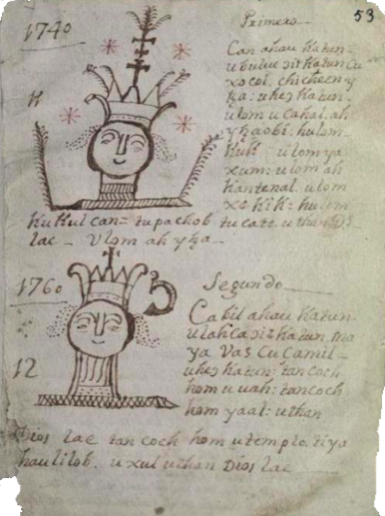 53
1740
Primero
Can ahau Katun
u buluc zit Katun Cu
xocoi. chicheen y
tza: u hez Katun.
ulom u cahal ah
ytzaobi. hulom
Kuk ulom ya
xum: ulom ah
Kantenal. ulom
xe Kik: hulom
11
Kukulcan= tu pachob tu caten u than Dios
lae - Vlom ah ytza
1760
Segundo
Cabil ahau Katun
u lahca zit Katun. ma
ya Vas Cu Cumil
u hez Katun: tan coch
hom u uah: tan coch
hom yaal: u than
12
Dios lae tan coch hom u templo. ti ya
haulilob. u xul u than Dios lae